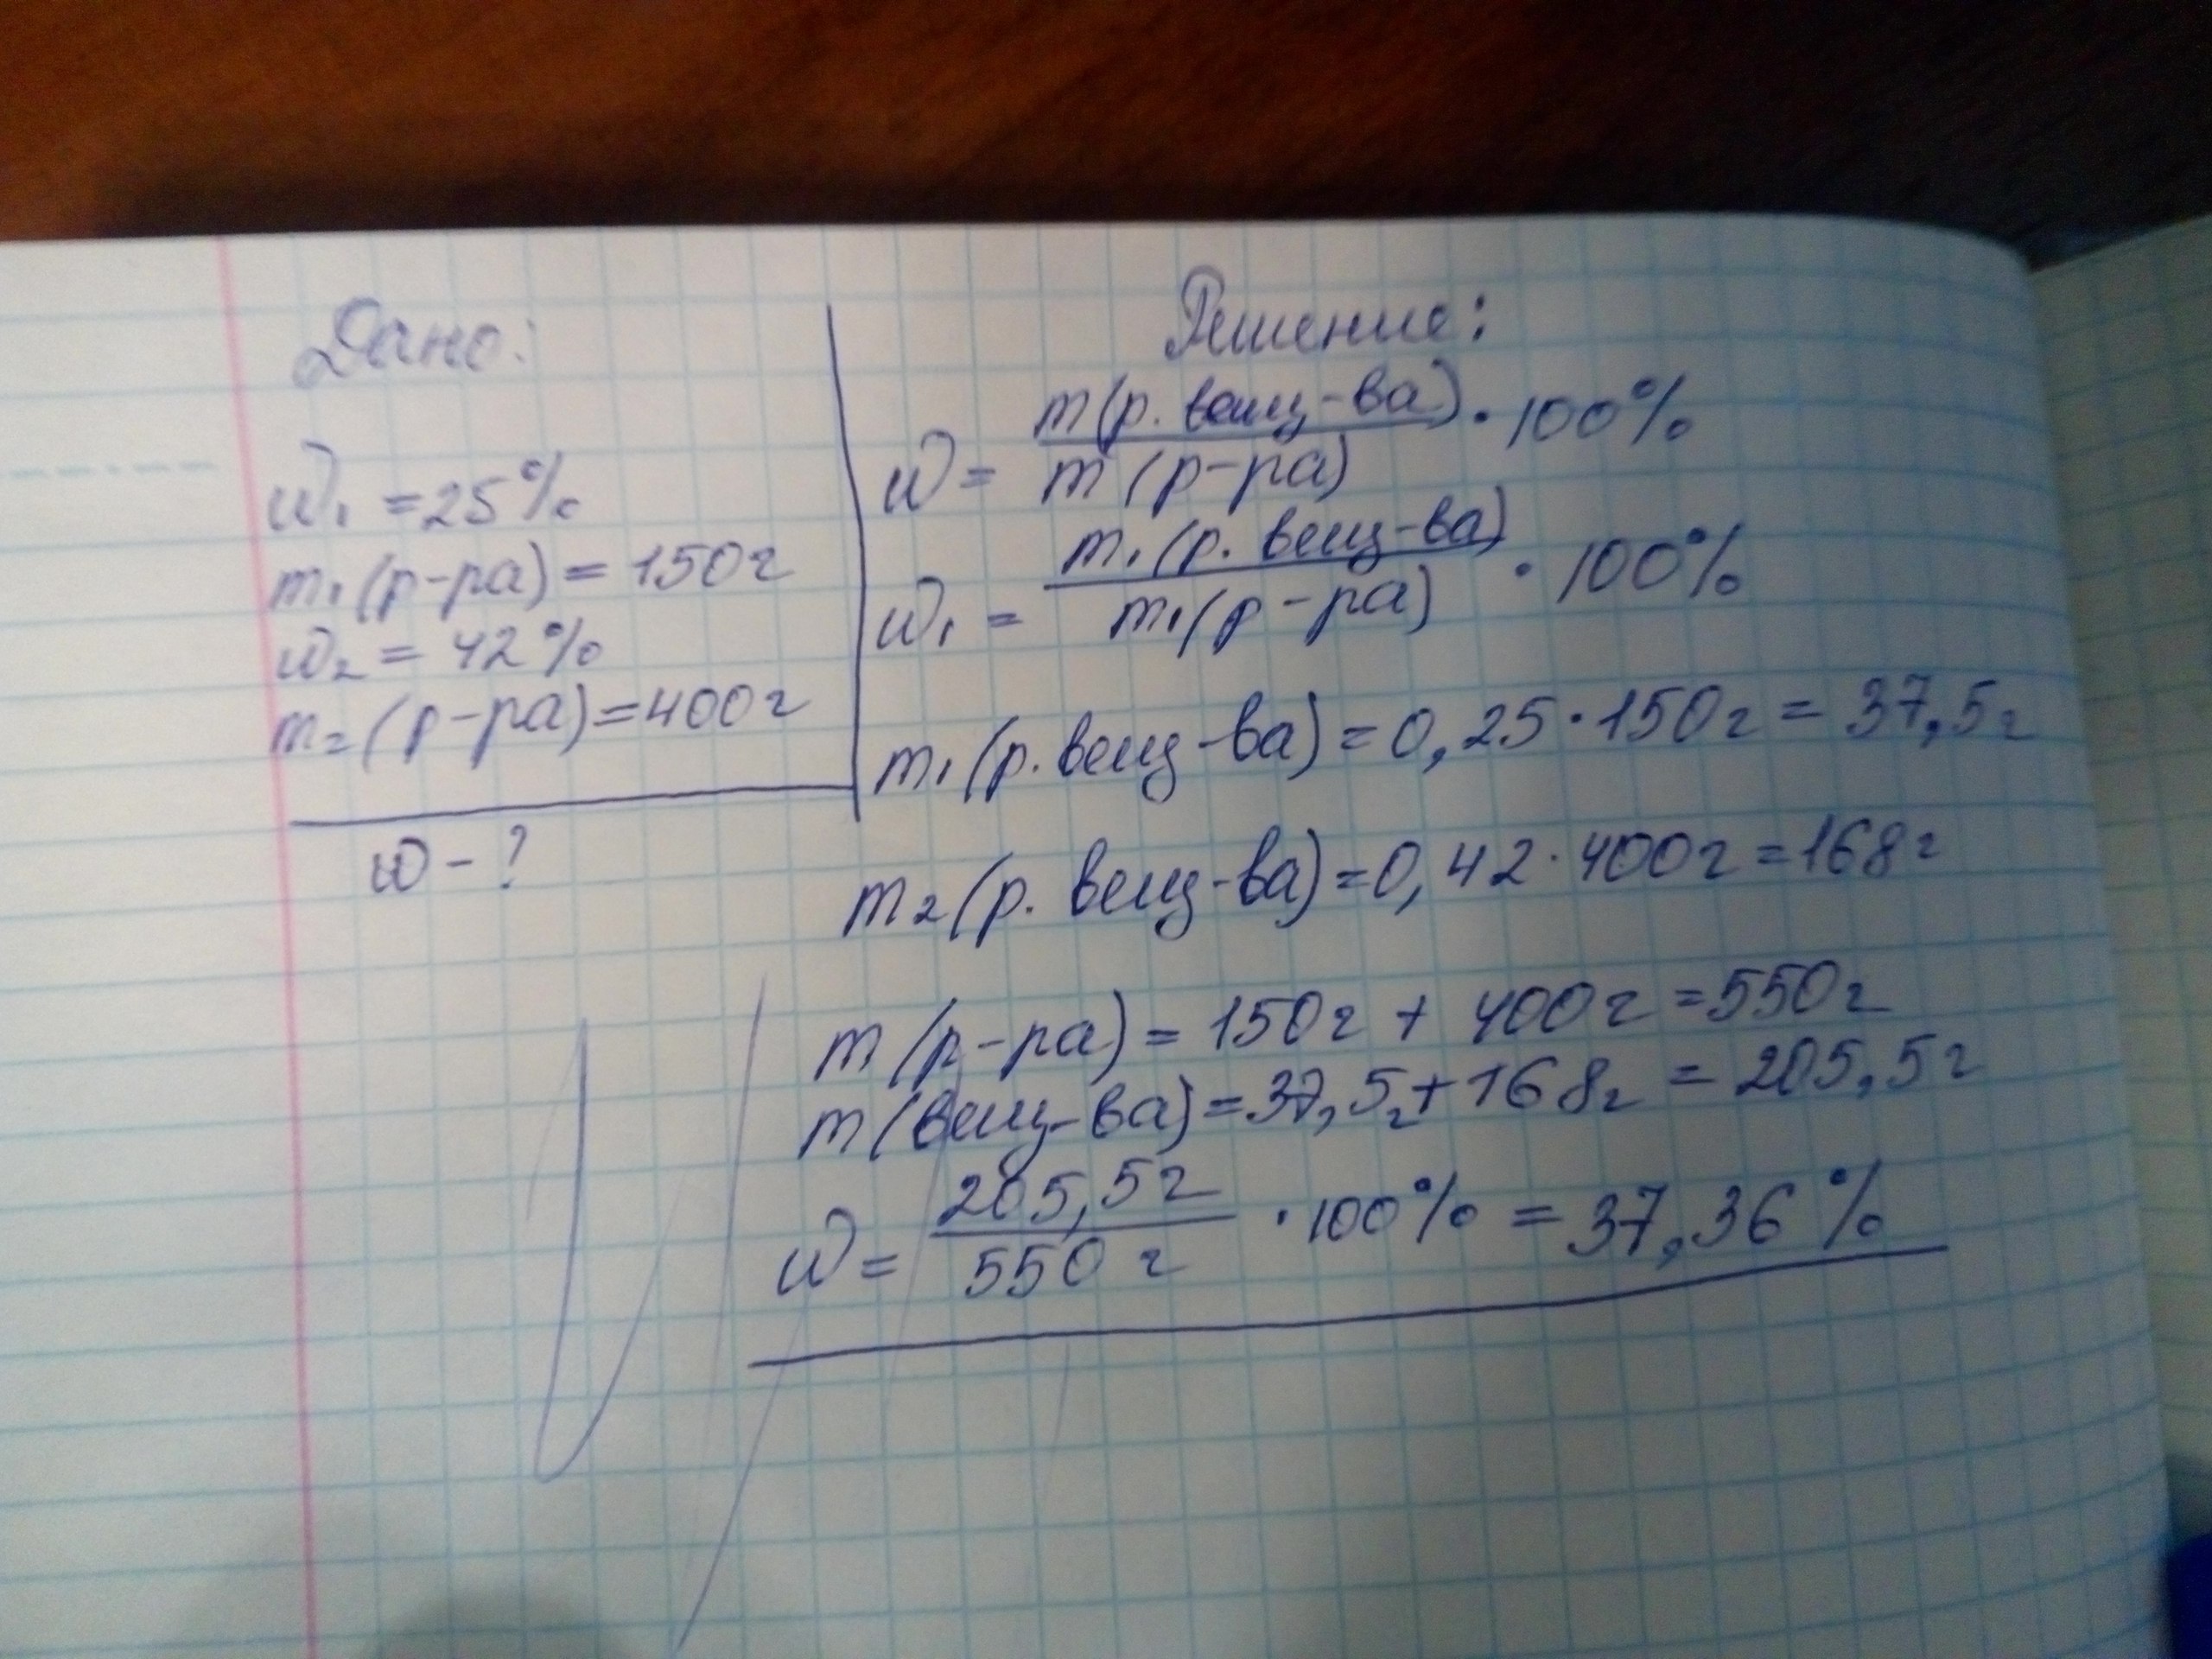 Дано:
w₁ = 25%
m₁(р-ра) = 150г
w₂ = 42%
m₂(р-ра) = 400г
w - ?
Решение:
w = m(р. вещ-ва) / m(р-ра) · 100%
w₁ = m₁(р. вещ-ва) / m₁(р-ра) · 100%
m₁(р. вещ-ва) = 0,25 · 150г = 37,5г
m₂(р. вещ-ва) = 0,42 · 400г = 168г
m(р-ра) = 150г + 400г = 550г
m(вещ-ва) = 37,5г + 168г = 205,5г
w = 205,5г / 550г · 100% = 37,36%